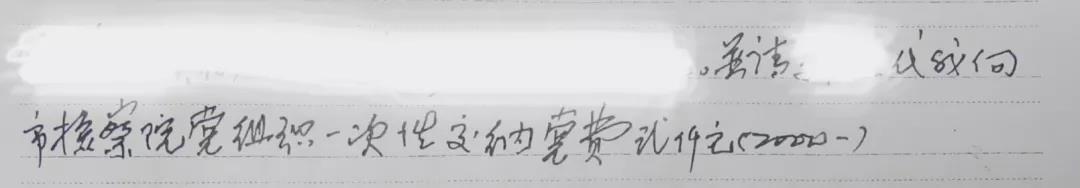 。并请 代我向
市检察院党组织一次性交纳党费贰仟元(2000-)